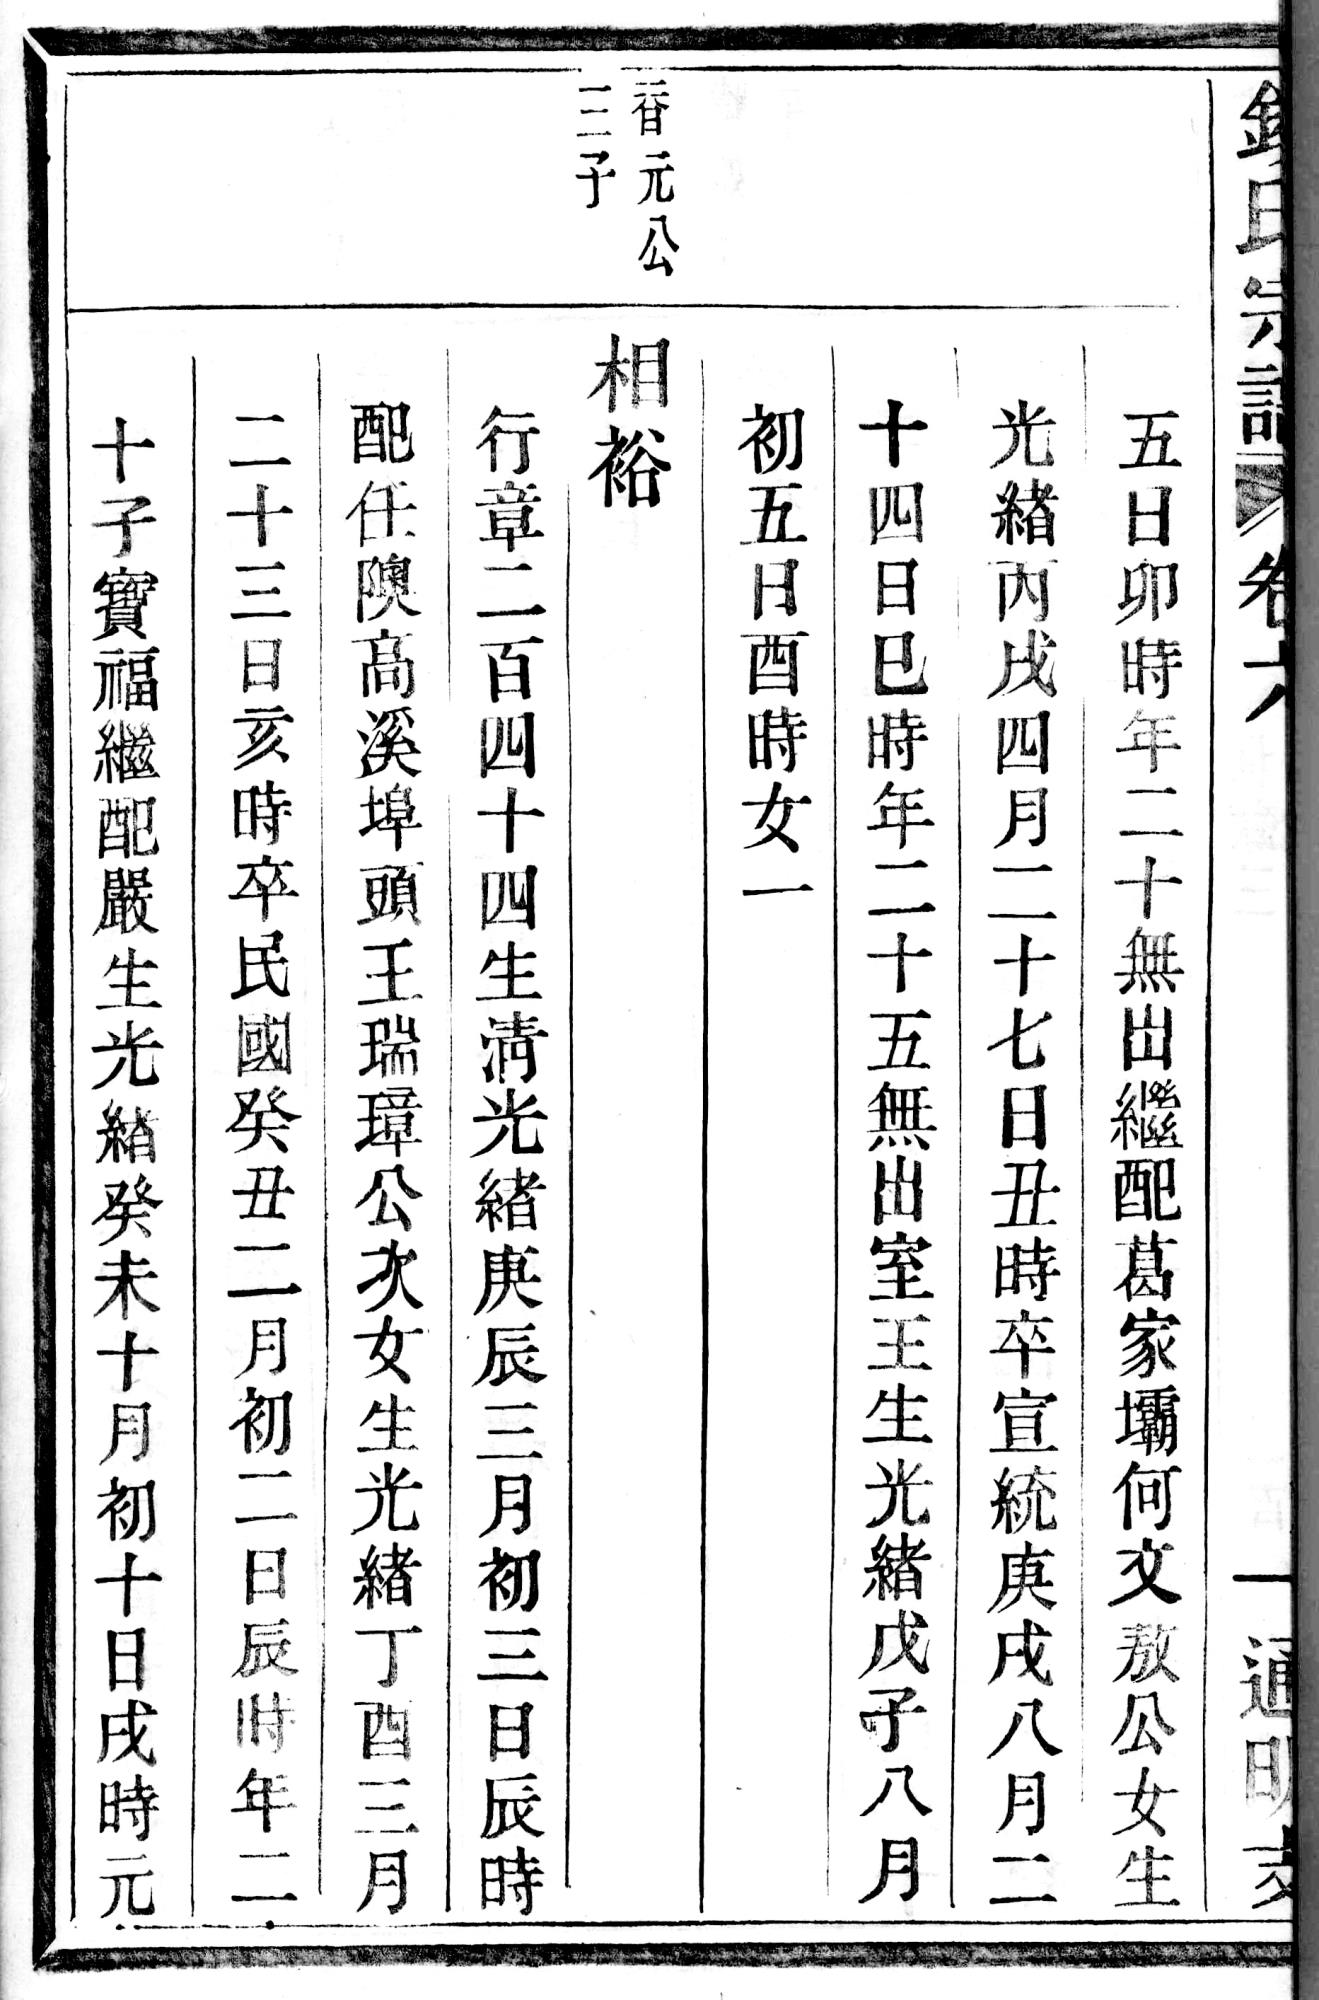 錢氏宗譜 卷六 一 通明支
五日卯時年二十無出繼配葛家壩何文敖公女生
光緒丙戌四月二十七日丑時卒宣統庚戌八月二
十四日巳時年二十五無出室王生光緒戊子八月
初五日酉時女一
春元公
三子
相裕
行章二百四十四生清光緒庚辰三月初三日辰時
配任隩高溪埠頭王瑞璋公次女生光緒丁酉三月
二十三日亥時卒民國癸丑二月初二日辰時年二
十子寶福繼配嚴生光緒癸未十月初十日戌時元